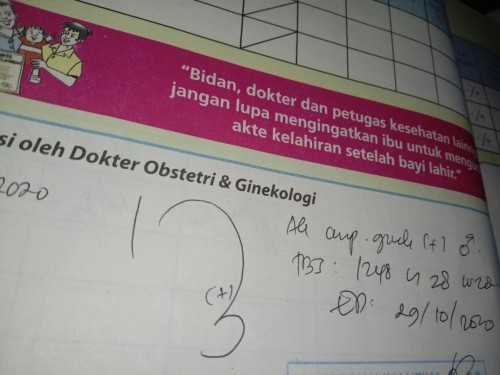 "Bidan, dokter dan petugas kesehatan lainn
jangan lupa mengingatkan ibu untuk mengu
akte kelahiran setelah bayi lahir."
si oleh Dokter Obstetri & Ginekologi
2020
(+)
(+) ♂
TBJ: 1248 28
29/10/2020